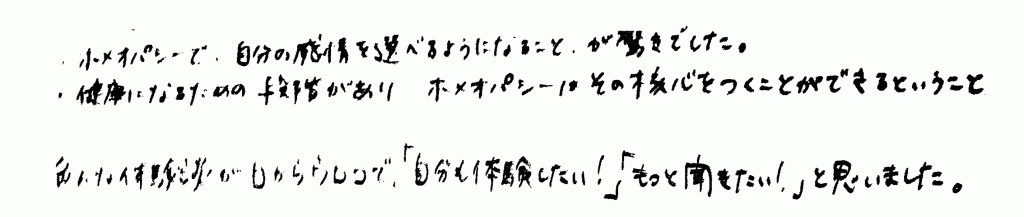 ・ホメオパシーで、自分の感情を選べるようになること、が驚きでした。
・健康になるための段階があり ホメオパシーはその核心をつくことができるということ
みんな体験談が「自分も体験したい！」「もっと聞きたい！」と思いました。